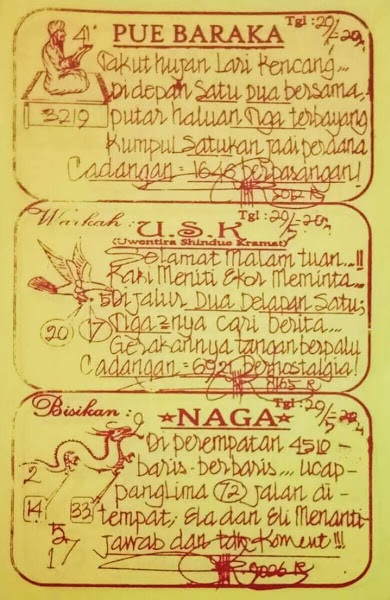 Tgl: 20/5-20
4
PUE BARAKA
Takut hujan Lari kencang...
Di depan Satu Dua bersama,
3219
putar haluan Nga terbayang
Kumpul Satukan jadi perdana
Cadangan = 1646 berpasangan!
Warkah: U.S.K
Tgl: 20/5-20
(Uwentira Shindue Kramat)
Selamat Malam tuan...!!
Kaki Meniti Ekor Meminta...
5
Di jalur Dua Delapan Satu;
20
17
Nga=nya cari berita...
Gerakannya tangan berpalu
Cadangan = 6921 Bernostalgia!
Bisikan:
NAGA
Tgl: 20/5-20
9
Di perempatan 4510-
baris-berbaris... ucap-
2
panglima 72 jalan di-
14
33
tempat, Ela dan Eli Menanti-
5
17
jawab dan Koment!!!